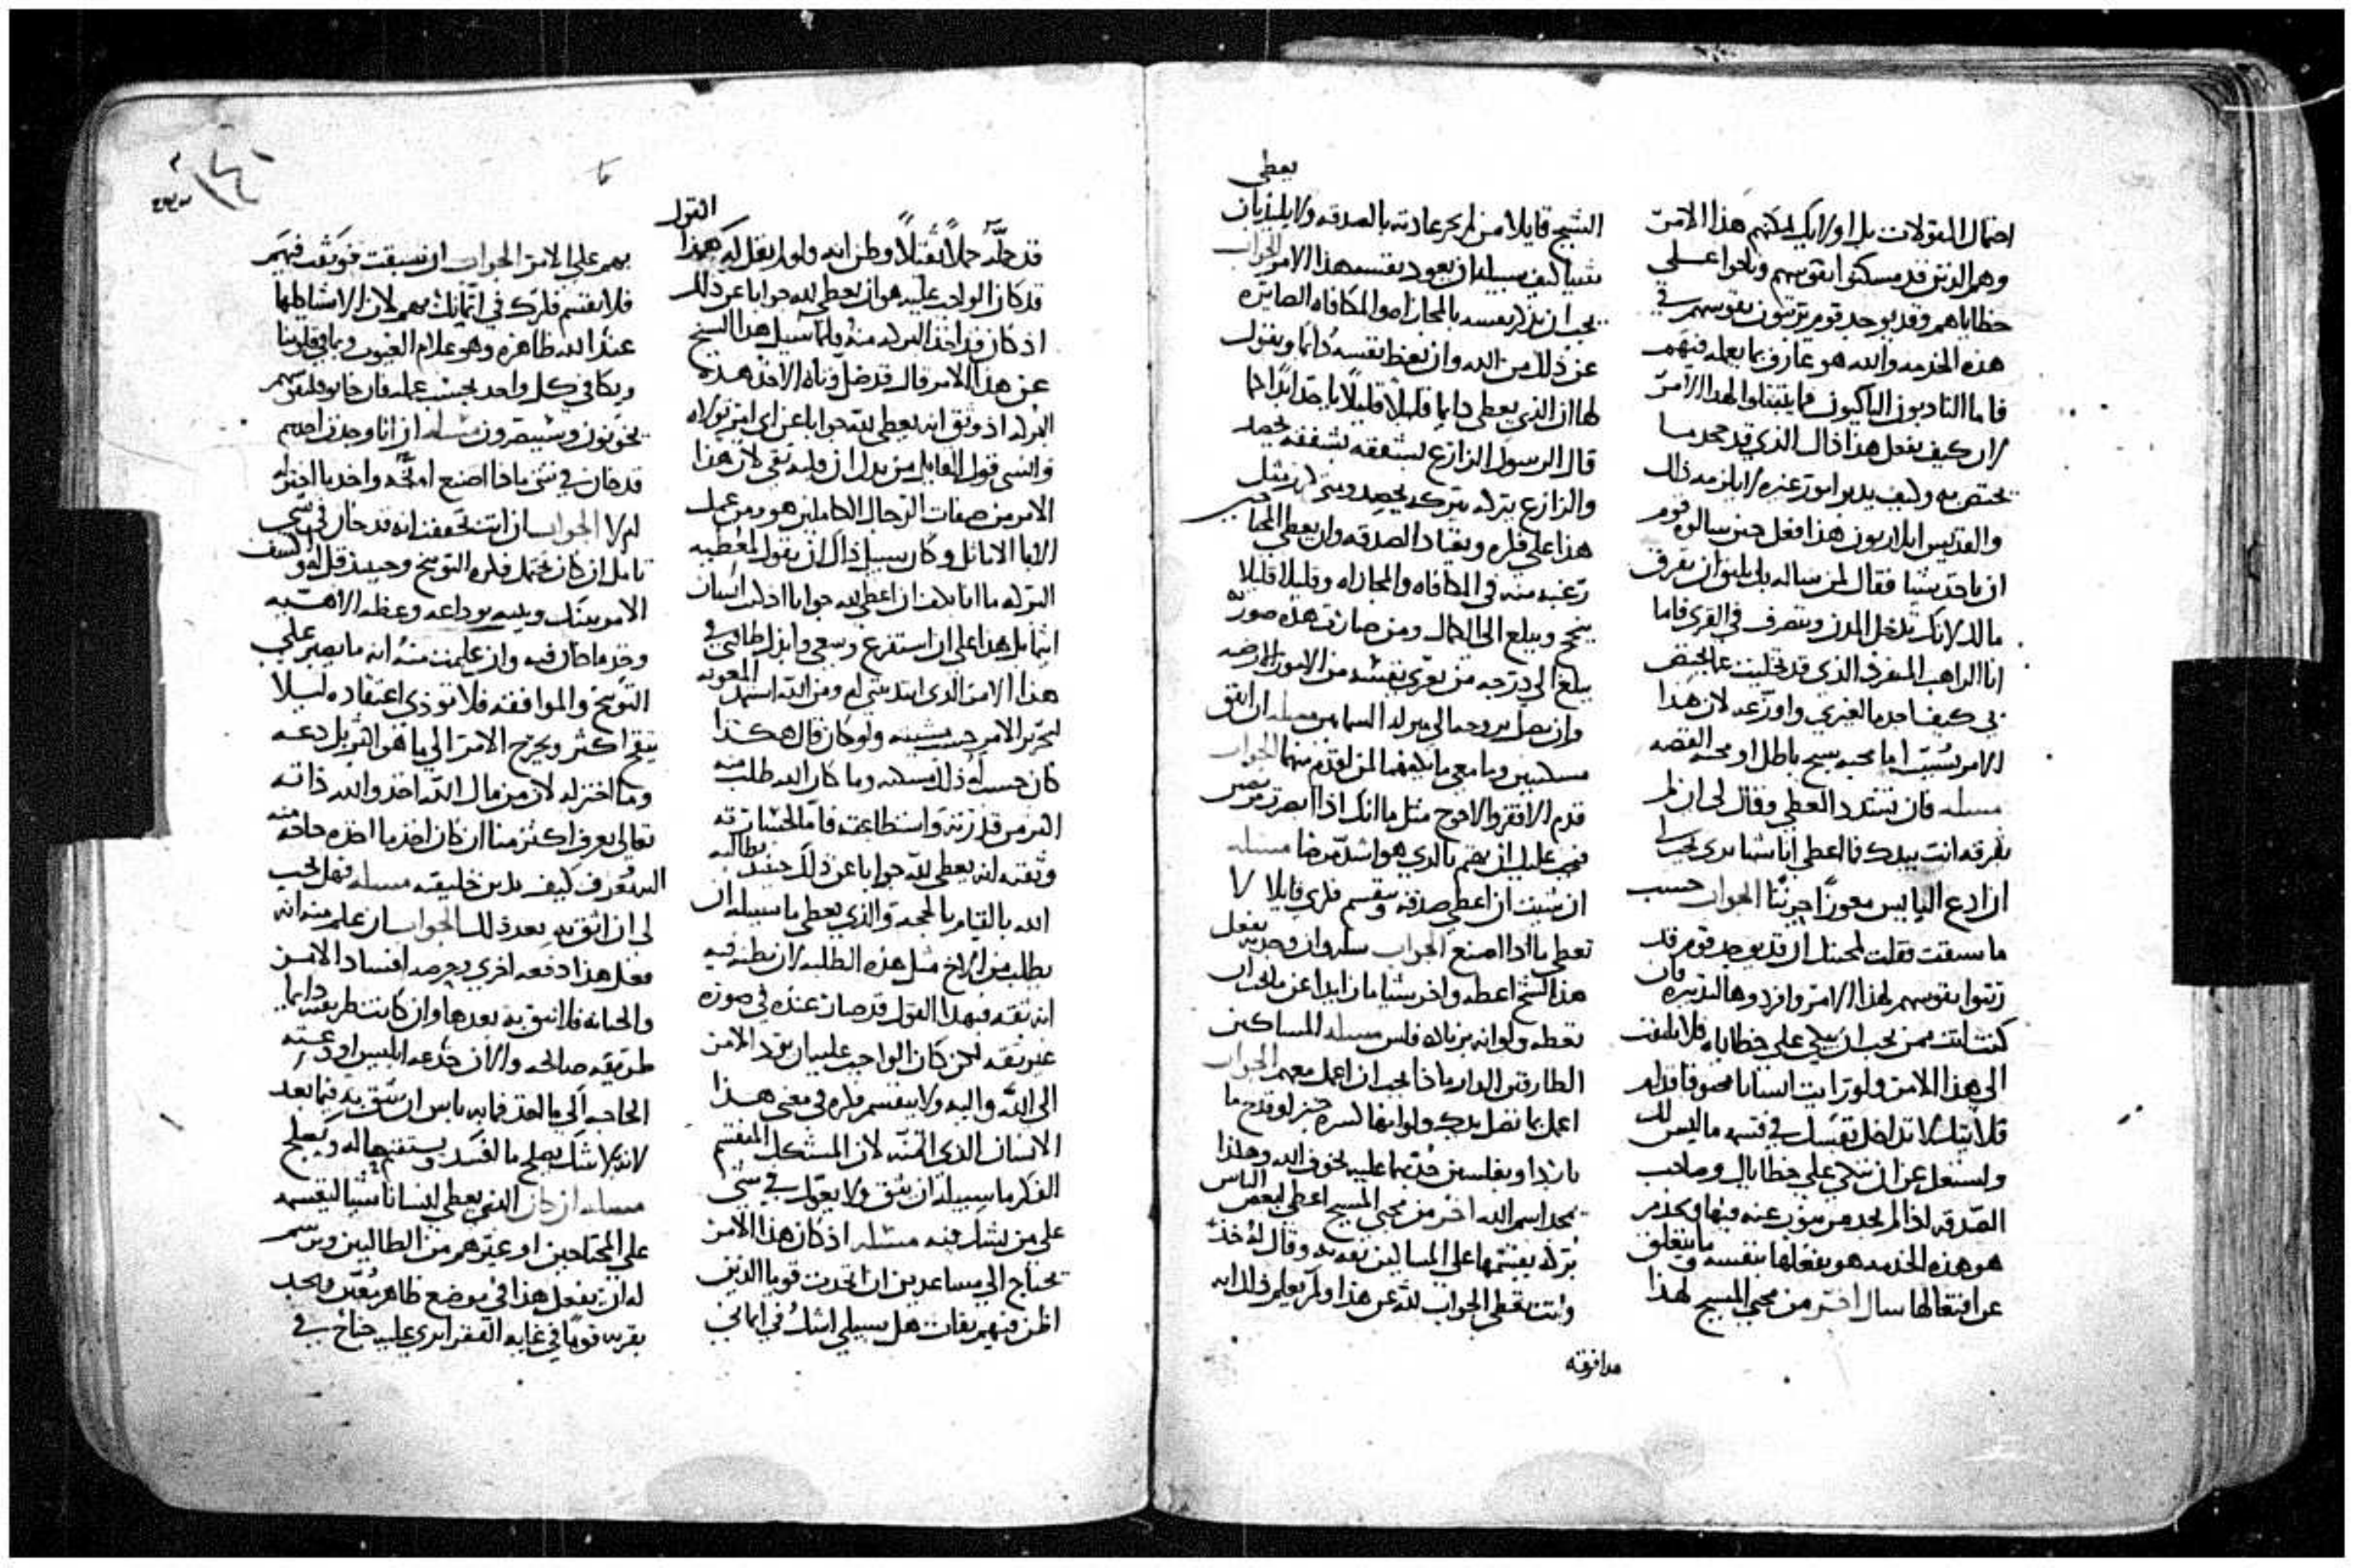 احتمال المقولات بل اولايك يمكنهم هذا الامر
وهم الذين قد مسكنوا نفوسهم وناحوا علي
خطاياهم وقد يوجد قوم يرتبون نفوسهم في
هذه الخدمه والله هو عارف بما يعمله فيهم
فاما النادبون الباكيون فما يتنقلوا لهذا الامر
لان كيف يفعل هذا ذاك الذي قد جحد ما
يختص به وكيف يدبر امور غيره لا يلزمه ذلك
والقديس ايلاريون هذا فعل حين سالوه قوم
ان ياخذ شيا فقال لمن ساله بل يليق ان يفرق
مالك لانك تدخل المدن وتتصرف في القري فاما
انا الراهب المنفرد الذي قد تخليت عما يختص
بي كيف اخذ ما لغيري واوزعه لان هذا
الامر سببه اما محبه سبح باطل او محبه الفضه
مسله فان تشدد المعطي وقال لي ان لم
تفرقه انت بيدك فما اعطي انا شيا تري يجب لي
ان ادع البايس معوزا حزينا الجواب حسب
ما سبقت فقلت لمحبتك ان قد يوجد قوم قد
رتبوا نفوسهم لهذا الامر وافردوها لتدبيره فان
كنت انت ممن يجب ان يبكي علي خطاياه فلا تلتفت
الي هذا الامر ولو رايت انسانا مخنوقا قدام
قلايتك لا تدخل نفسك في قنيه ما ليس لك
ولتشتغل عن ان تبكي علي خطاياك وصاحب
الصدقه اذا لم يجد من ينوب عنه فيها ويخدم
هو هذه الخدمه هو يفعلها بنفسه ما يتعلق
عن افتعالها سال اخر من محبي المسيح لهذا
الشيخ قايلا من لم تجر عادته بالصدقه ولا يلذ بان يعطي
شيا كيف سبيله ان يعود نفسه هذا الامر الجواب
يجب ان يذكر نفسه بالمجازاه والمكافاه الصايره
عن ذلك من الله وان يعظ نفسه دايما ويقول
لها ان الذي يعطي دايما قليلا قليلا ياخذ ابدا كما
قال الرسول الزارع بشفقه بشفقه يحصد
والزارع ببركه ببركه يحصد
هذا علي فكره ويعتاد الصدقه وان يعطي المحتاج
رغبه منه في المكافاه والمجازاه وقليلا قليلا
ينجح ويبلع الي الكمال ومن صارت هذه صورته
يبلغ الي درجه من يعري نفسه من الامور الارضيه
وان يصل بروحه الي ميراث السما مسله ان اتفق
مسكينين وما معي ما يكفيهما لمن اقدم منهما الجواب
قدم الافقر والاحوج مثل ما انك اذا ابصرت مرضى
فيجب عليك ان تهتم بالذي هو اشد مرضا مسله
ان شيت ان اعطي صدقه وينقسم فكري قايلا لا
تعطي ماذا اصنع الجواب
هذا الشح اعطه واخر شيا ما زايدا عن ما يجب ان
تعطه ولو انه من ناله فلس مسله المساكين
الطارقين الدار ماذا يجب ان اعمل معهم الجواب
اعمل بما تصل يدك ولو انها كسره خبز او قدح ما
بارد او بفلسين خذ بما عليه لخوف الله وهكذا
يمجد اسم الله اخر من محبي المسيح اعطي لبعض الناس
بركه يقسمها علي المساكين بيده وقال له خذ
وانت تعطي الجواب لله عن هذا ولم يعلم ذلك انه
مدافوته
قد حمله حملا ثقيلا وظن انه ولو لم يقل له هكذا القول
قد كان الواجب عليه هو ان يعطي لله جوابا عن ذلك
اذ كان قد اخذ البركه منه فلما سيل هذا الشيخ
عن هذا الامر قال قد ضل فتاه الاخذ هذه
البركه اذ وثق انه يعطي لله جوابا عن اي امر تولاه
وانسي قول القايل من يدل ان قلبه نقي لان هذا
الامر من صفات الرجال الكاملين هو ومن عمل
الابا الاماثل وكان سبيل ذاك ان يقول لمعطيه
البركه ما انا بكفو ان اعطي لله جوابا اذ كنت انسان
اثيما بل هذا علي ان استفرغ وسعي وابذل طاقتي في
هذا الامر الذي ابتديتني له ومن الله استمد المعونه
لتحرير الامر حسب مشيته ولو كان قال هكذا
كان حسب له ذلك مسكنه وما كان الله طلب منه
اكثر من قدرته واستطاعته فاما لجسارته
وثقته انه يعطي لله جوابا عن ذلك حينيذ يطالبه
الله بالقيام بالحجه والذي يعطي ما سبيله ان
يطلب من الاخ مثل هذه الطلبه لان بظنه فيه
انه ثقه فبهذا القول قد صار عنده في صوره
غير ثقه لكن كان الواجب عليه ان يرد الامر
الي الله واليه ولا ينقسم فكره في معني هذا
الانسان الذي ائتمنه لان المشكك المنقسم
الفكر ما سبيله ان يثق ولا يعول في شي
علي من يشك فيه مسله اذ كان هذا الامر
يحتاج الي مساعدين ان اتخذت قوما الذين
اظن فيهم ثقات هل سبيلي اشك في ايماني
بهم علي الامر الجواب ان سبقت فوثقت فيهم
فلا ينقسم فكرك في ائتمانك بهم لان الاشيا كلها
عند الله ظاهره وهو علام الغيوب وبما في قلوبنا
ويكافي كل واحد بحسب عمله فان خانو فلنفوسهم
يخونون وسيبصرون مسله ان انا وجدت احدهم
قد خان في شي ماذا اصنع اوبخه واخذ ما اختزله
ام لا الجواب ان انت تحققت انه قد خان في شي
تامل ان كان يحتمل فكره التوبيخ وحينيذ قل له واكشف
الامر بينك وبينه بوداعه وعظه الاهبه
وخذ ما خان فيه وان علمت منه انه ما يصبر علي
التوبيخ والموافقه فلا توذي اعتقاده ليلا
يتقح اكثر ويخرج الامر الي ما هو اشر بل دعه
وما اختزله لان من مال الله اخذ والله ذاته
تعالي يعرف اكثر منا ان كان اخذ ما اخذه حاجه منه
اليه ويعرف كيف يدين خليقته مسله فهل يجب
لي ان اثق به بعد ذلك الجواب ان علم منه انه
فعل هذا دفعه اخري بحرصه افساد الامر
والخيانه فلا تثق به بعدها وان كانت طريقته دايما
طريقه صالحه والان خدعه ابليس او دعته
الحاجه الي ما اخذ فما به باس ان تثق به فيما بعد
لانه لا شك يصلح ما افسد ويستقيم حاله ويصلح
مسله ان كان الذي يعطي انسانا شيا ليقسمه
علي المحتاجين او غيرهم من الطالبين ورسم
له ان يفعل هذا في موضع ظاهر معين ويجد
بقربه قوما في غايه الفقر اتري عليه جناح في